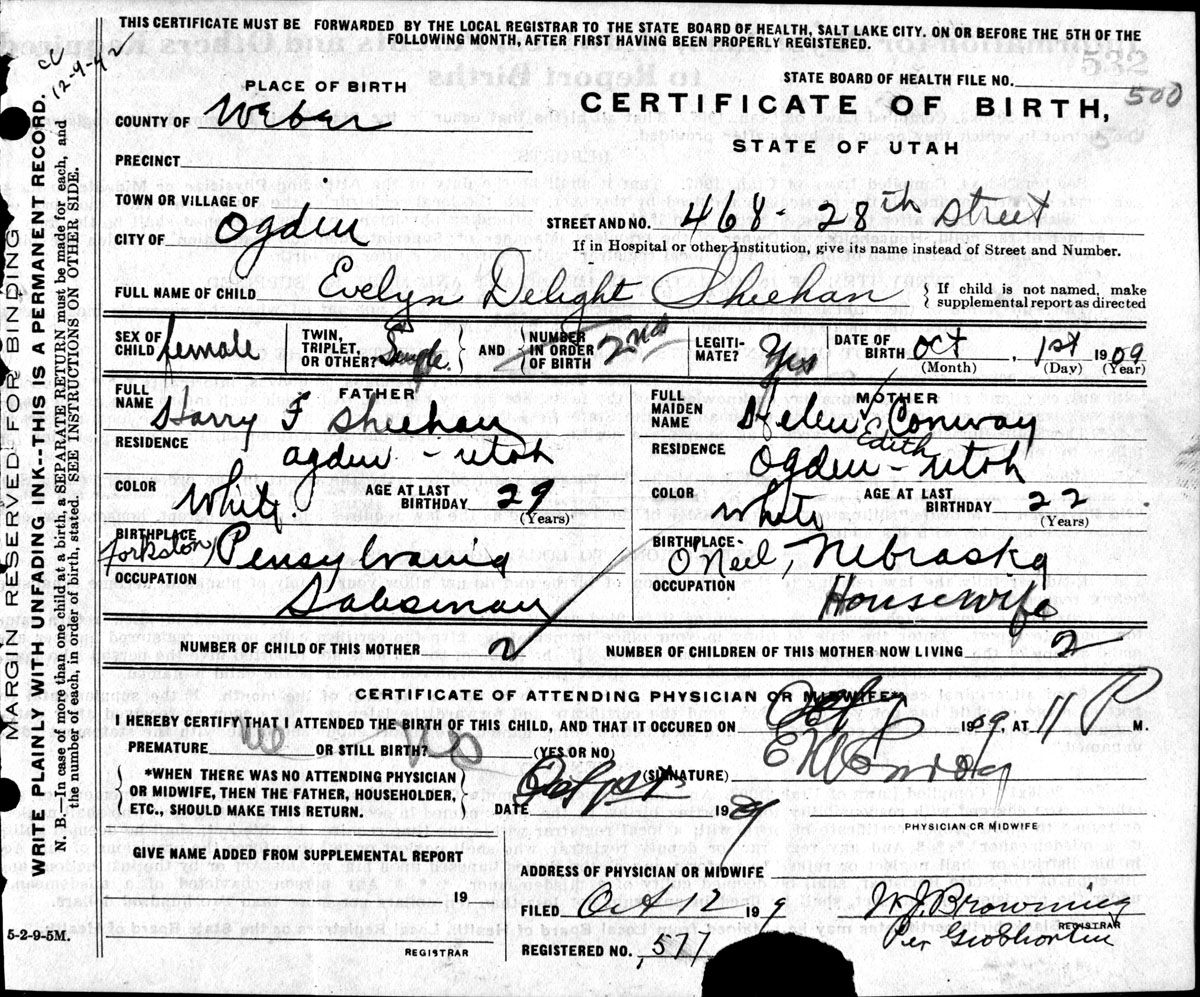 THIS CERTIFICATE MUST BE FORWARDED BY THE LOCAL REGISTRAR TO THE STATE BOARD OF HEALTH, SALT LAKE CITY. ON OR BEFORE THE 5TH OF THE
FOLLOWING MONTH, AFTER FIRST HAVING BEEN PROPERLY REGISTERED.
12-9-42
MARGIN RESERVED FOR BINDING
WRITE PLAINLY WITH UNFADING INK--THIS IS A PERMANENT RECORD.
N. B.—In case of more than one child at a birth, a SEPARATE RETURN must be made for each, and
the number of each, in order of birth, stated. SEE INSTRUCTIONS ON OTHER SIDE.
532
STATE BOARD OF HEALTH FILE NO. 500
PLACE OF BIRTH
CERTIFICATE OF BIRTH,
COUNTY OF Weber
STATE OF UTAH
PRECINCT
TOWN OR VILLAGE OF
STREET AND NO. 468 - 28th Street
CITY OF Ogden
If in Hospital or other Institution, give its name instead of Street and Number.
FULL NAME OF CHILD Evelyn Delight Sheehan { If child is not named, make supplemental report as directed
SEX OF CHILD female TWIN, TRIPLET, OR OTHER? Single } AND { NUMBER IN ORDER OF BIRTH 2nd LEGITI-MATE? Yes DATE OF BIRTH Oct, 1st 1909
(Month) (Day) (Year)
FATHER MOTHER
FULL NAME Harry F Sheehan FULL MAIDEN NAME Helen Edith Conway
RESIDENCE Ogden - Utah RESIDENCE Ogden - Utah
COLOR White AGE AT LAST BIRTHDAY 29 (Years) COLOR White AGE AT LAST BIRTHDAY 22 (Years)
BIRTHPLACE Forkston, Pensylvania BIRTHPLACE- O'Neil, Nebraska
OCCUPATION Salesman OCCUPATION Housewife
NUMBER OF CHILD OF THIS MOTHER 2 NUMBER OF CHILDREN OF THIS MOTHER NOW LIVING 2
CERTIFICATE OF ATTENDING PHYSICIAN OR MIDWIFE*
I HEREBY CERTIFY THAT I ATTENDED THE BIRTH OF THIS CHILD, AND THAT IT OCCURED ON Oct 1 1909, AT 11 P M.
PREMATURE no OR STILL BIRTH? no (YES OR NO)
(SIGNATURE)
{ *WHEN THERE WAS NO ATTENDING PHYSICIAN OR MIDWIFE, THEN THE FATHER, HOUSEHOLDER, ETC., SHOULD MAKE THIS RETURN. }
DATE 19
PHYSICIAN OR MIDWIFE
GIVE NAME ADDED FROM SUPPLEMENTAL REPORT
ADDRESS OF PHYSICIAN OR MIDWIFE
19
FILED Oct 12 199 W. J. Browning
REGISTRAR
Per
5-2-9-5M.
REGISTRAR
REGISTERED NO. 577